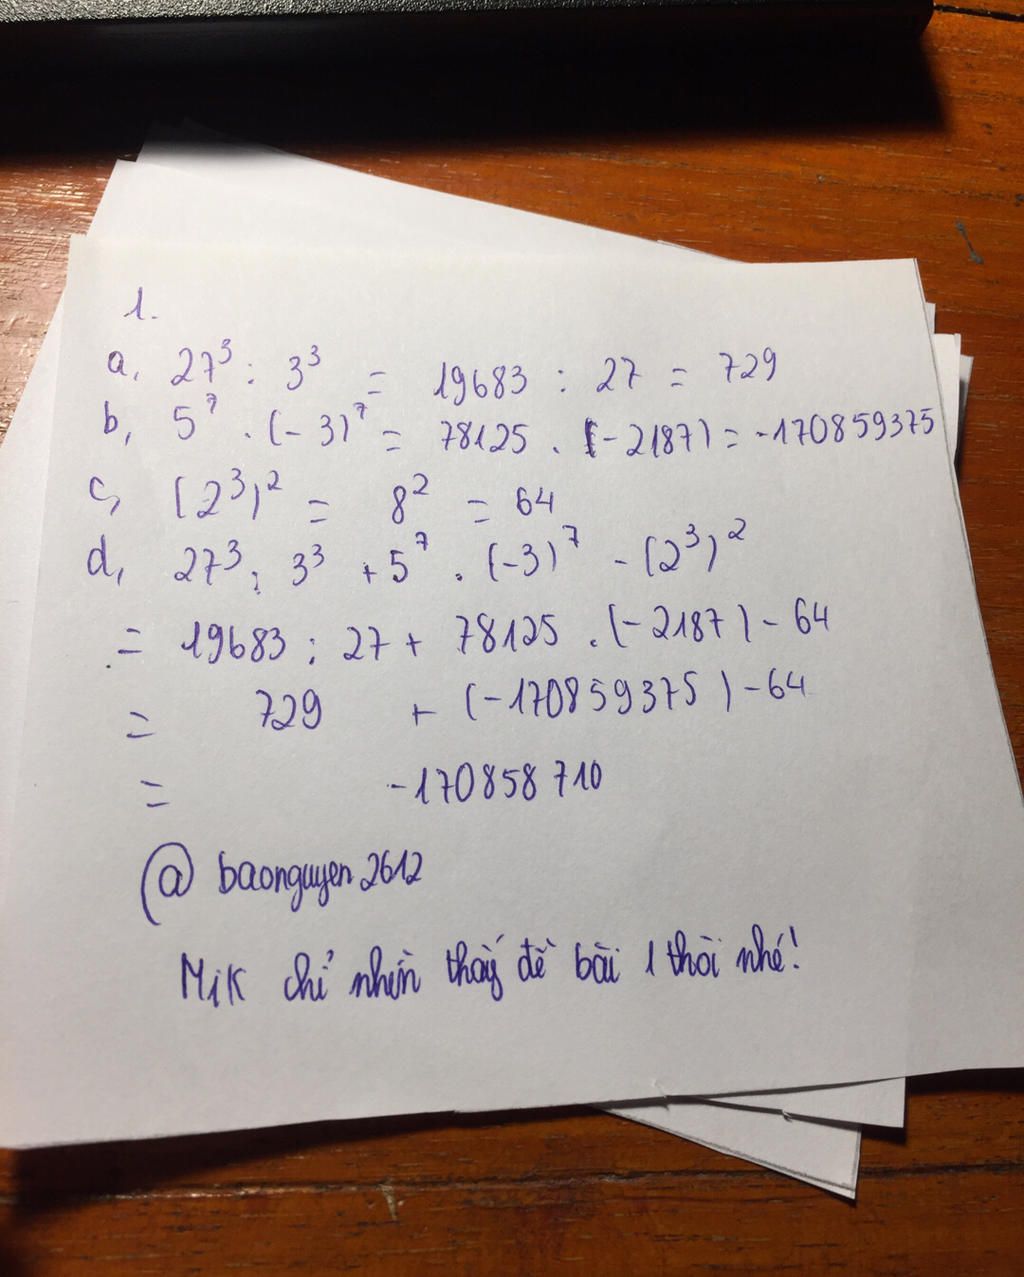 1.
a, 27³ : 3³ = 19683 : 27 = 729
b, 5⁷ . (-3)⁷ = 78125 . (-2187) = -170859375
c, (2³)² = 8² = 64
d, 27³ : 3³ + 5⁷ . (-3)⁷ - (2³)²
= 19683 : 27 + 78125 . (-2187) - 64
= 729 + (-170859375) - 64
= -170858710
@baonguyen2612
Mik chỉ nhìn thấy đề bài 1 thôi nhé!